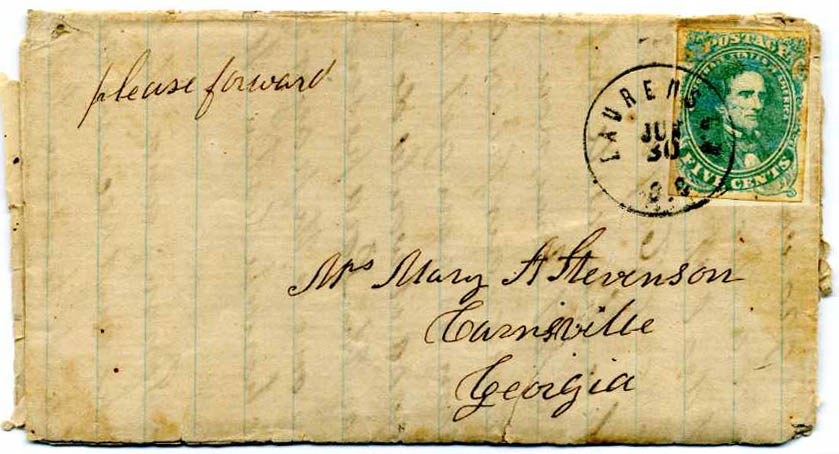 please forward
POSTAGE
CONFEDERATE STATES OF AMERICA
FIVE CENTS
LAURENS
JUN
30
Mrs Mary A Stevenson
Carnsville
Georgia